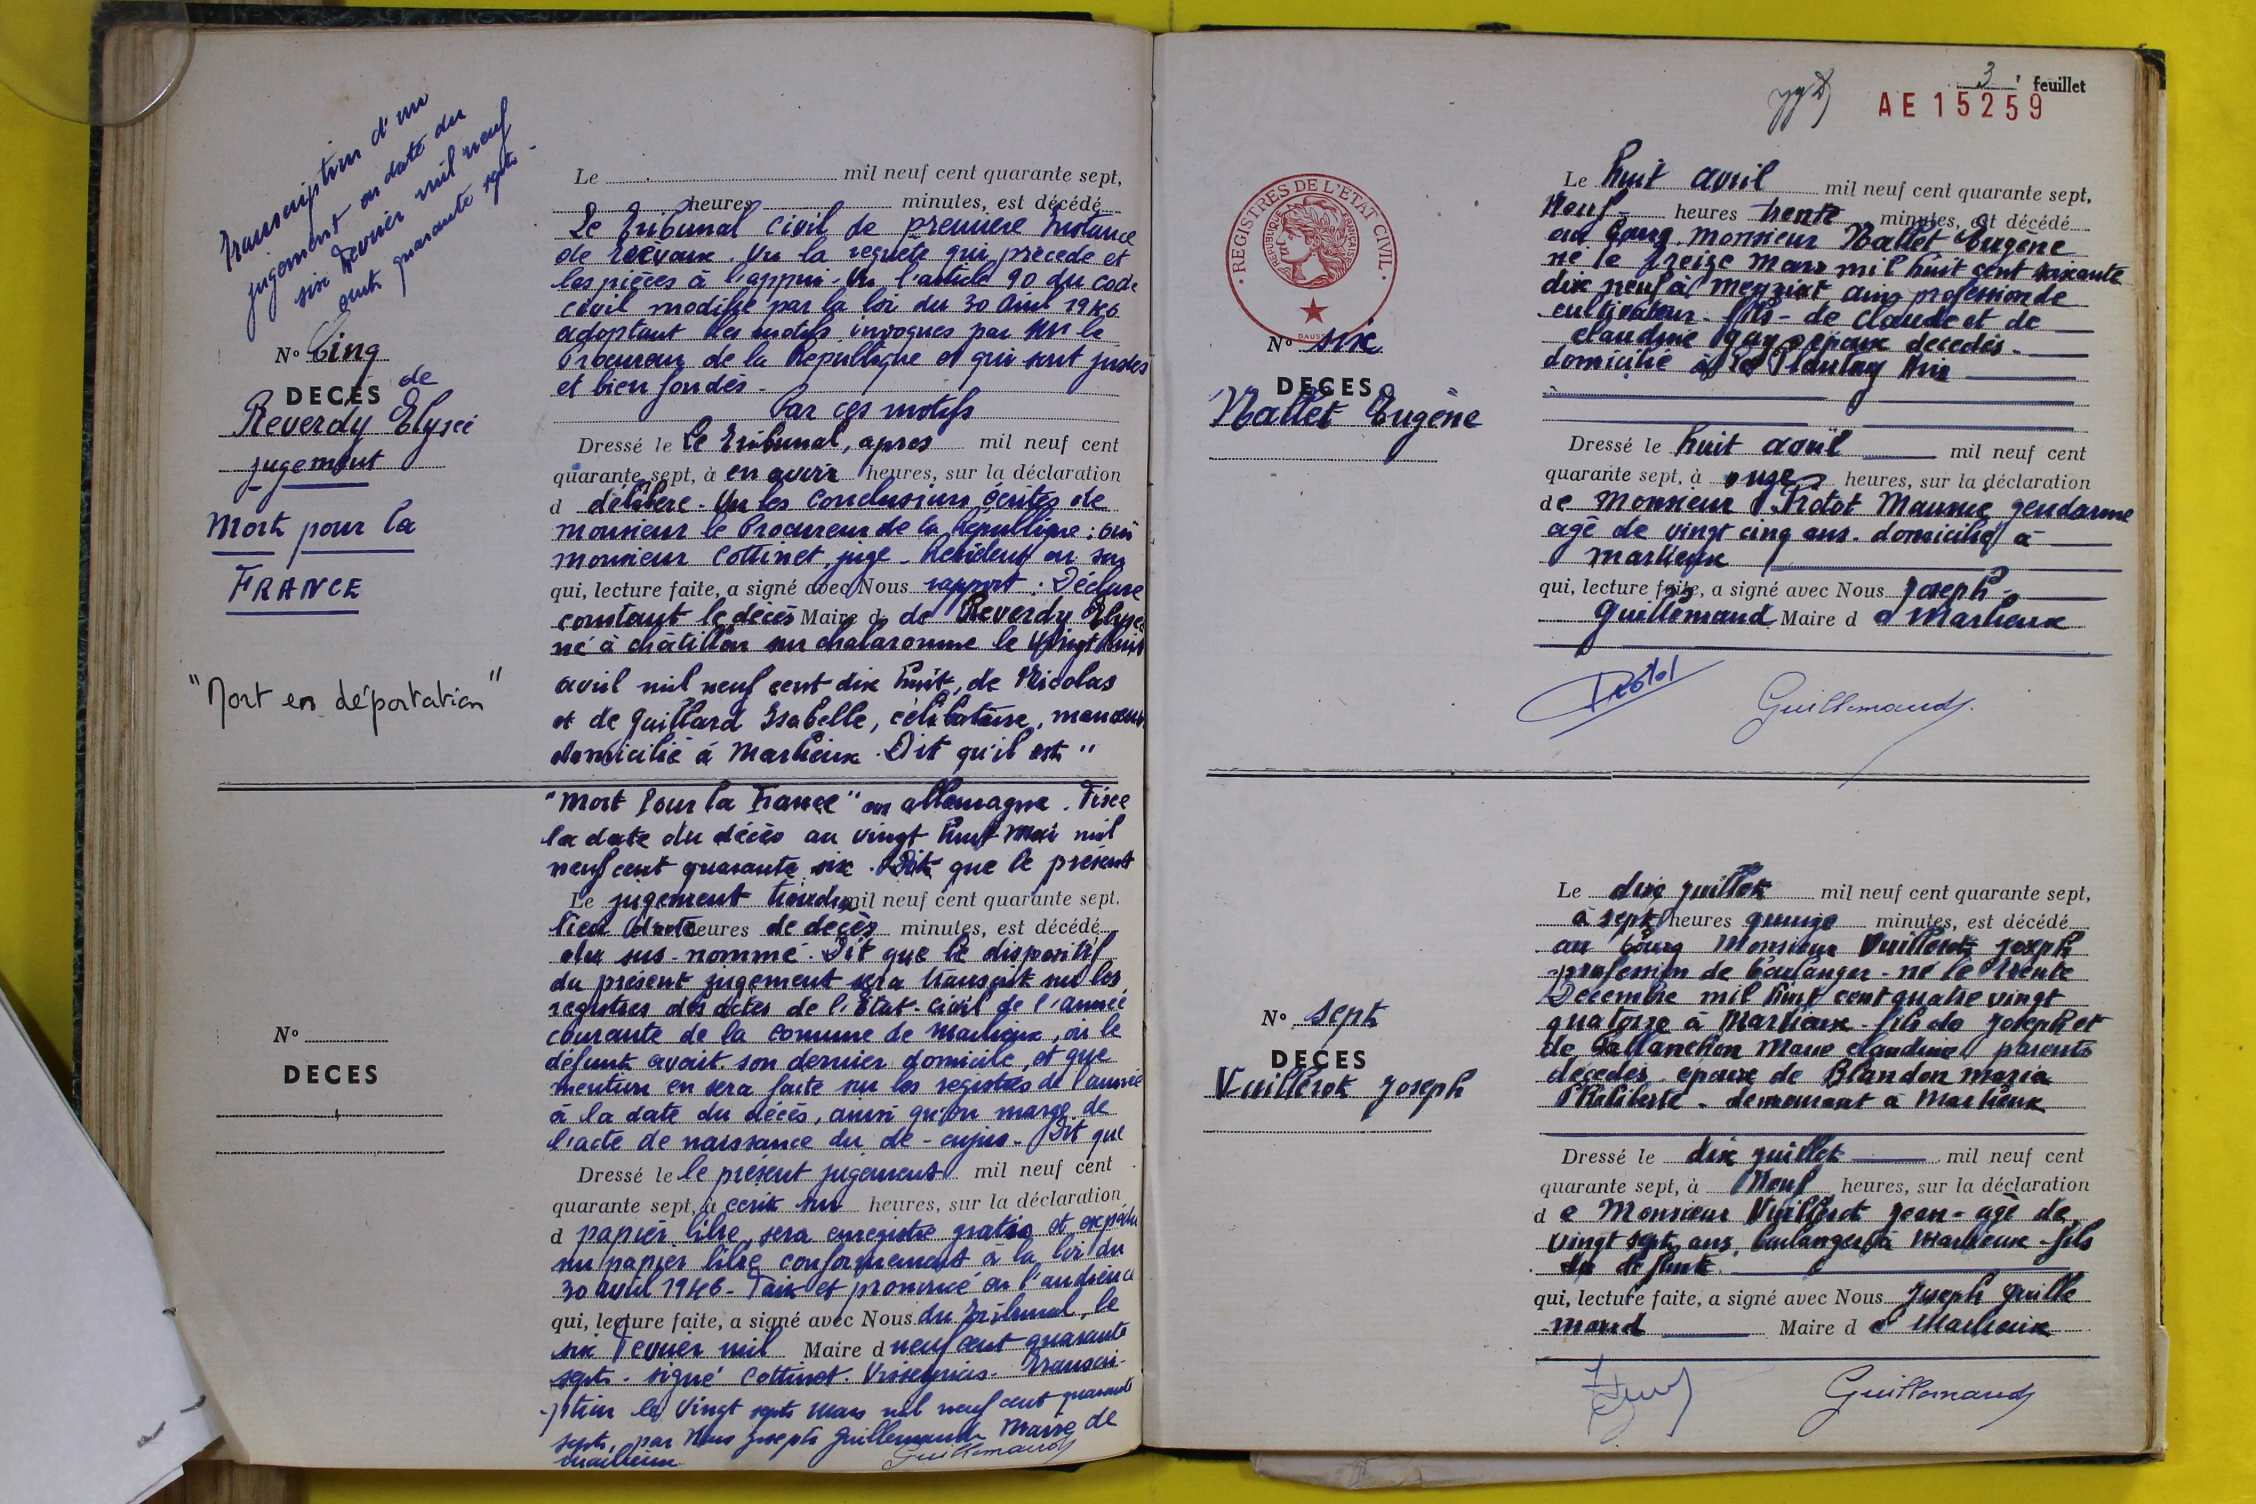 Transcription d'un
jugement en date du
six Fevrier mil neuf
cent quarante sept.
N° Cinq
DECES de
Reverdy Elysée
jugement
Mort pour la
FRANCE
"Mort en déportation"
Le mil neuf cent quarante sept,
heures minutes, est décédé
Le Tribunal civil de première Instance
de Trévoux. Vu la requête qui précède et
les pièces à l'appui. Vu l'article 90 du code
civil modifié par la loi du 30 Avril 1946
adoptant les motifs invoqués par Mr le
Procureur de la République et qui sont justes
et bien fondés.
Par ces motifs
Dressé le Le Tribunal, apres mil neuf cent
quarante sept, à en avoir heures, sur la déclaration
d délibéré. Vu les conclusions écrites de
monsieur le Procureur de la République; oui
monsieur Cottinet, juge-Président en son
qui, lecture faite, a signé avec Nous rapport. Déclare
constant le décès Maire d de Reverdy Elysée
né à châtillon sur chalaronne le vingt huit
avril mil neuf cent dix huit, de Nicolas
et de Guillard Isabelle, célibataire, manœuvre
domicilié à Marlieux. Dit qu'il est "
"Mort Pour la France" en allemagne. Fixe
la date du décès au vingt huit mai mil
neuf cent quarante six. Dit que le présent
Le jugement tiendra mil neuf cent quarante sept.
lieu d'acte heures de décès minutes, est décédé
du sus-nommé. Dit que le dispositif
du présent jugement sera transcrit sur les
registres des actes de l'Etat-Civil de l'année
courante de la commune de Marlieux, où le
défunt avait son dernier domicile, et que
mention en sera faite sur les registres de l'année
à la date du décès, ainsi qu'en marge de
l'acte de naissance du de-cujus. Dit que
Dressé le le présent jugement mil neuf cent
quarante sept, à ecrit sur heures, sur la déclaration
d papier libre, sera enregistré gratis et expédié
sur papier libre conformement à la loi du
30 avril 1946. Fait et prononcé en l'audience
qui, lecture faite, a signé avec Nous du Tribunal, le
six Fevrier mil Maire d neuf cent quarante
sept. signé Cottinet. Transcri-
ption le vingt sept mars mil neuf cent quarante
sept, par Nous Joseph Guillemaud Maire de
Marlieux Guillemaud
N°
DECES
3 feuillet
AE 15259
REGISTRES DE L'ETAT CIVIL
REPUBLIQUE FRANÇAISE
N° six
DECES
Nallet Eugène
Le huit avril mil neuf cent quarante sept,
Neuf heures trente minutes, est décédé
au bourg Monsieur Nallet Eugène
né le treize mars mil huit cent soixante
dix neuf à Meyziat Ain, profession de
cultivateur. fils de Claude et de
claudine Gay époux décédés.
domicilié à Le Plantay Ain
Dressé le huit avril mil neuf cent
quarante sept, à onze heures, sur la déclaration
de Monsieur Protot Maurice gendarme
agé de vingt cinq ans. domicilié à
marlieux
qui, lecture faite, a signé avec Nous Joseph
Guillemaud Maire d e Marlieux
Protot Guillemaud
N° sept
DECES
Vuillerot Joseph
Le dix juillet mil neuf cent quarante sept,
à sept heures quinze minutes, est décédé
au bourg Monsieur Vuillerot Joseph
profession de boulanger - né le trente
Décembre mil huit cent quatre vingt
quatorze à Marlieux - fils de Joseph et
de Gallanchon Marie claudine parents
décédés. epoux de Blandon Maria
Philiberte. demeurant à Marlieux
Dressé le dix juillet mil neuf cent
quarante sept, à Neuf heures, sur la déclaration
d e Monsieur Vuillerot Jean - agé de
vingt sept ans, boulanger à Marlieux - fils
du défunt.
qui, lecture faite, a signé avec Nous Joseph Guille
maud Maire d e Marlieux
Guillemaud